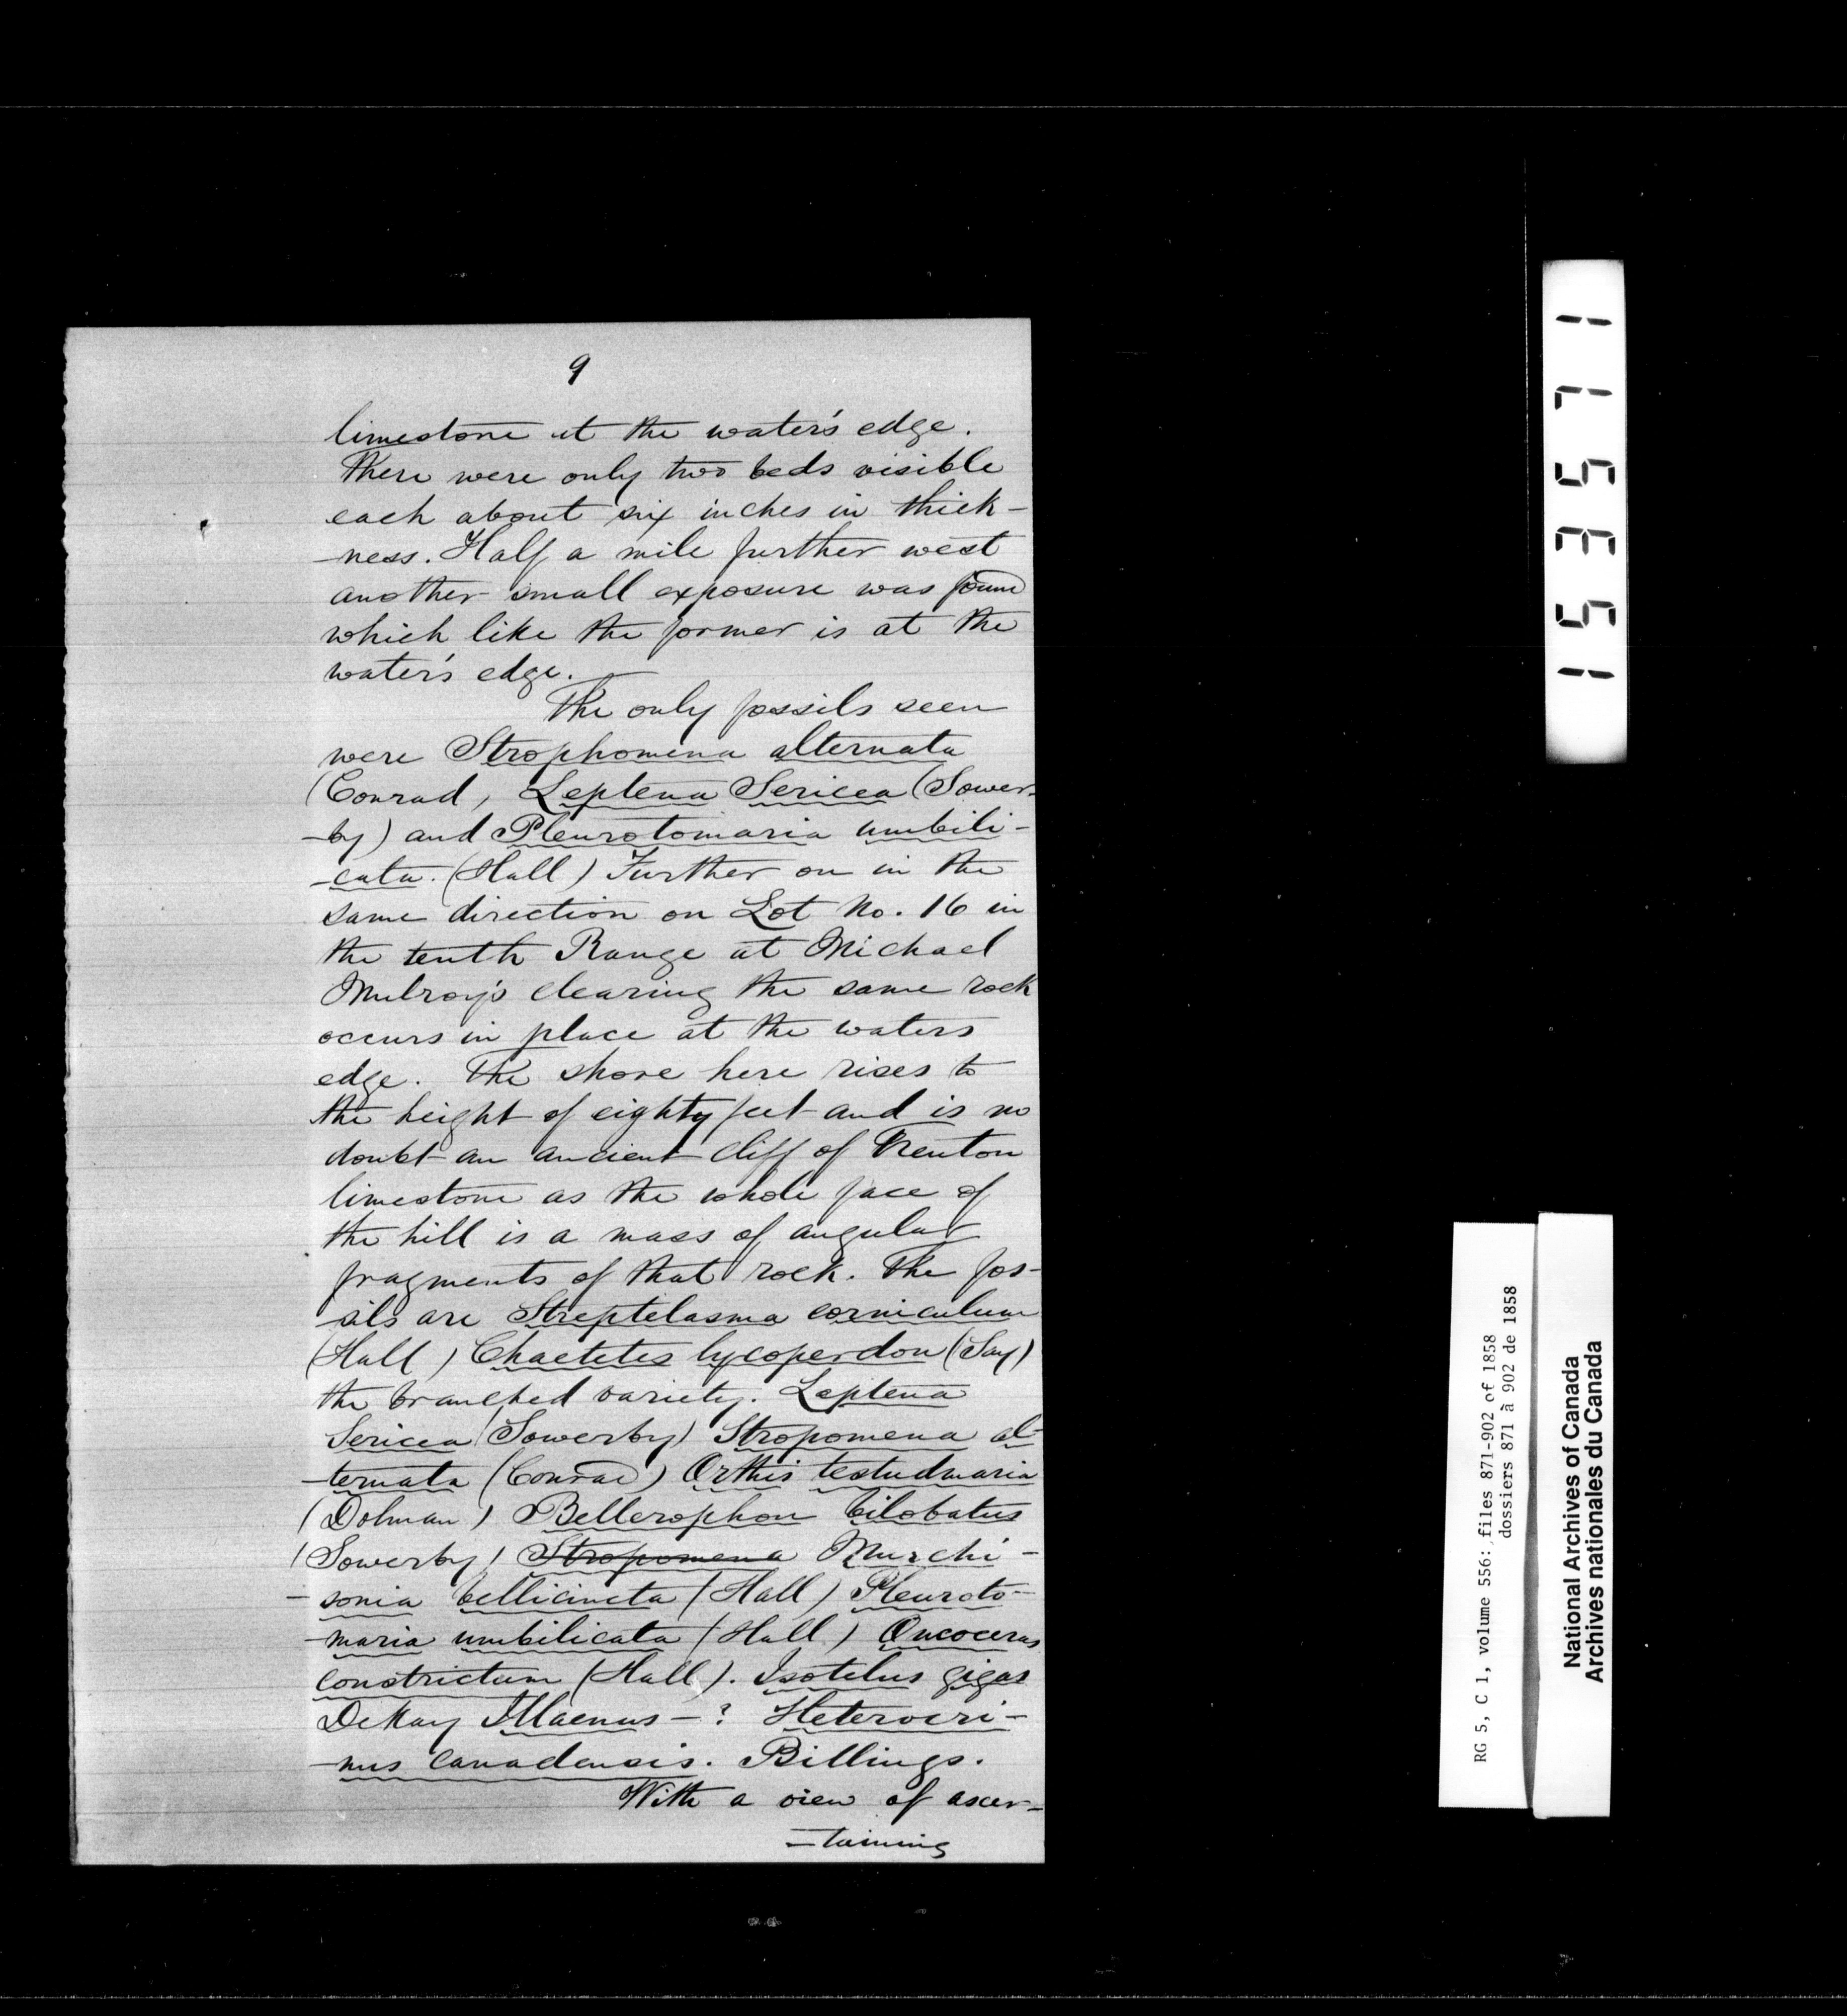 9
limestone at the water's edge.
There were only two beds visible
each about six inches in thick-
-ness. Half a mile further west
another small exposure was found
which like the former is at the
water's edge.
The only fossils seen
were Strophomena alternata
(Conrad, Leptena Sericea (Sower-
-by) and Pleurotomaria umbili-
-cata. (Hall) Further on in the
same direction on Lot No. 16 in
the tenth Range at Michael
Mulroy's clearing the same rock
occurs in place at the waters
edge. The shore here rises to
the height of eighty feet and is no
doubt an ancient cliff of Trenton
limestone as the whole face of
the hill is a mass of angular
fragments of that rock. The fos-
-sils are Streptelasma corniculum
(Hall) Chaetetes lycoperdon (Say)
the branched variety. Leptena
Sericea (Sowerby) Stropomena al-
-ternata (Conrad) Orthis testudinaria
(Dolman) Bellerophon bilobatus
(Sowerby) Stropomena Murchi-
-sonia bellicincta (Hall) Pleuroto-
-maria umbilicata (Hall) Oncoceras
constrictum (Hall). Isotelus gigas
DeKay Illaenus - ? Heterocri-
-nus canadensis. Billings.
With a view of ascer-
-taining
153571
RG 5, C 1, volume 556: files 871-902 of 1858
dossiers 871 à 902 de 1858
National Archives of Canada
Archives nationales du Canada